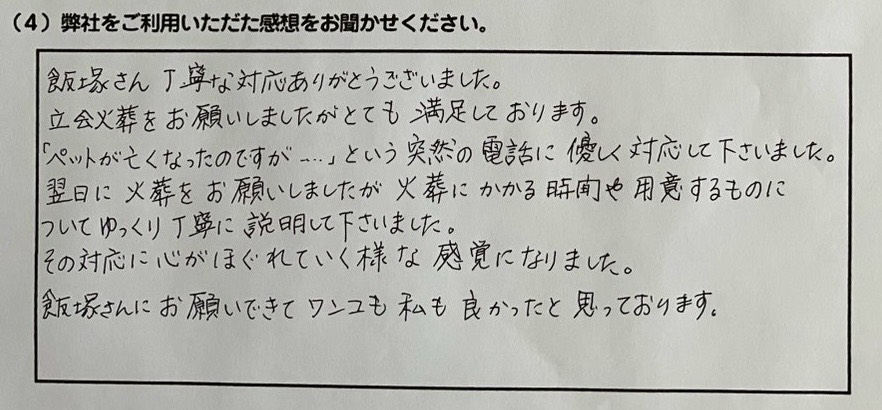 （4）弊社をご利用いただた感想をお聞かせください。
飯塚さん 丁寧な対応ありがとうございました。
立会火葬をお願いしましたがとても 満足しております。
「ペットが亡くなったのですが……」という突然の電話に 優しく対応して下さいました。
翌日に 火葬をお願いしましたが 火葬にかかる時間や用意するものに
ついてゆっくり丁寧に説明して下さいました。
その対応に心がほぐれていく様な 感覚になりました。
飯塚さんにお願いできてワンコも私も良かったと思っております。